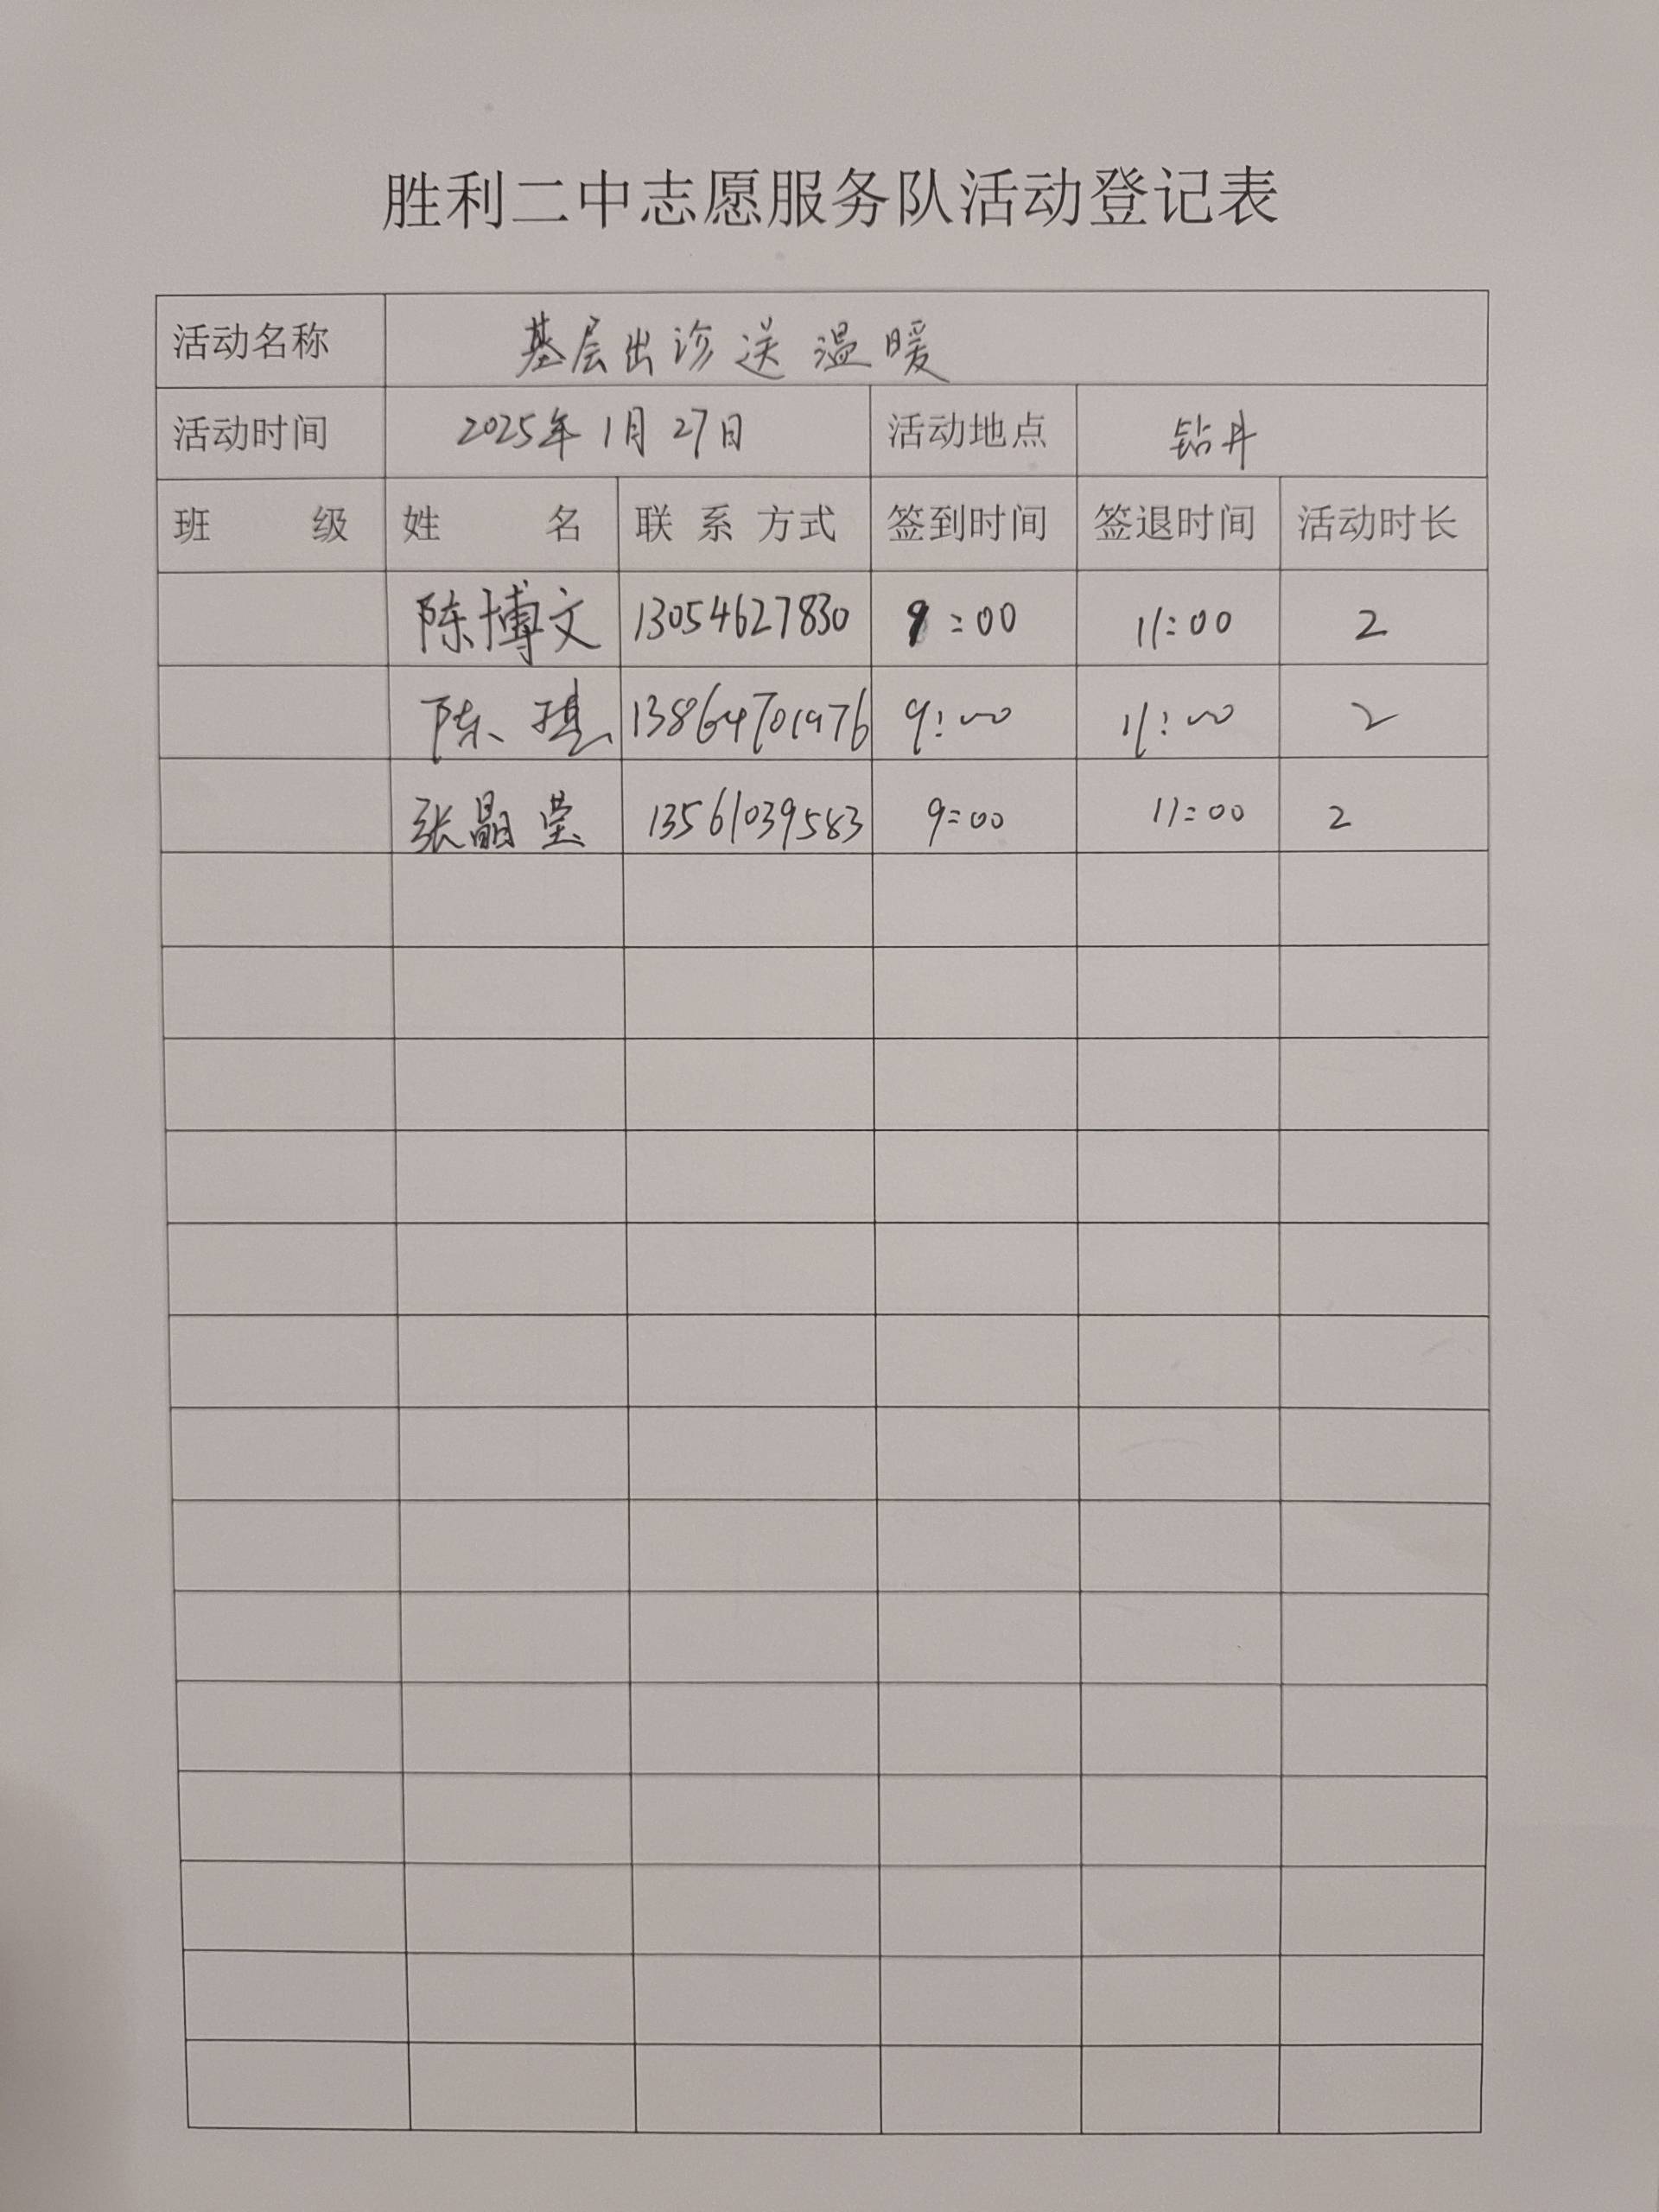 胜利二中志愿服务队活动登记表
活动名称 基层出诊送温暖
活动时间 2025年1月27日 活动地点 钻井
班 级 姓 名 联系方式 签到时间 签退时间 活动时长
陈博文 13054627830 9:00 11:00 2
陈琪 13864701976 9:00 11:00 2
张晶莹 13561039583 9:00 11:00 2